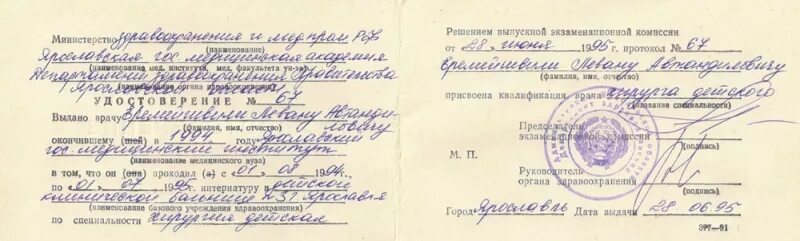 Министерство здравоохранения и медпром РФ
(наименование)
Ярославская гос. медицинская академия
(наименование мед. института, мед. факультета ун-та)
Департамент здравоохранения Правительства
Ярославской
(наименование органа здравоохранения)
УДОСТОВЕРЕНИЕ № 67
Выдано врачу Еремейшвили Левану Автандиловичу
(фамилия, имя, отчество)
окончившему (шей) в 1994 году Ярославский
гос. медицинский институт
(наименование медицинского вуза)
в том, что он (она) проходил (а) с «01» 08 1994г.
по «01» 07 1995 интернатуру в детской
клинической больнице №1 г. Ярославля
(наименование базового учреждения здравоохранения)
по специальности хирургия детская
Решением выпускной экзаменационной комиссии
от «28» июня 1995г протокол № 67
Еремейшвили Левану Автандиловичу
(фамилия, имя, отчество)
присвоена квалификация врача хирурга детского
(название специальности)
Председатель
экзаменационной комиссии
(подпись)
М. П.
Руководитель
органа здравоохранения
(подпись)
Город Ярославль Дата выдачи 28.06.95